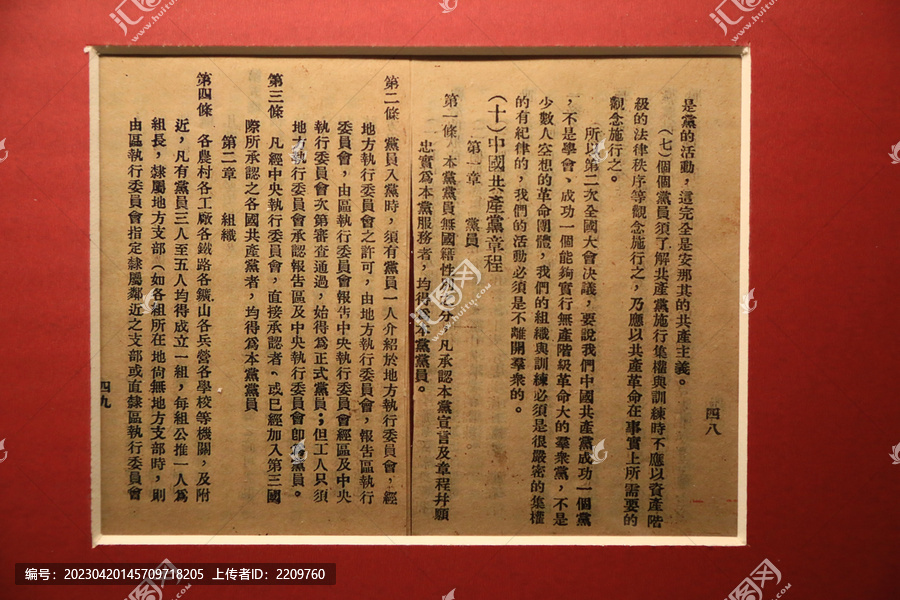 四八
是黨的活動，這完全是安那其的共產主義。
（七）個個黨員須了解共產黨施行集權與訓練時不應以資產階
級的法律秩序等觀念施行之，乃應以共產革命在事實上所需要的
觀念施行之。
所以第二次全國大會決議，要說我們中國共產黨成功一個黨
，不是學會，成功一個能夠實行無產階級革命大的羣衆黨，不是
少數人空想的革命團體，我們的組織與訓練必須是很嚴密的集權
的有紀律的，我們的活動必須是不離開羣衆的。
（十）中國共產黨章程
第一章　黨員
第一條　本黨黨員無國籍性別之分，凡承認本黨宣言及章程幷願
忠實爲本黨服務者，均得爲本黨黨員。
第二條　黨員入黨時，須有黨員一人介紹於地方執行委員會，經
地方執行委員會之許可，由地方執行委員會，報告區執行
委員會，由區執行委員會報告中央執行委員會經區及中央
執行委員會次第審查通過，始得爲正式黨員；但工人只須
地方執行委員會承認報告區及中央執行委員會卽爲黨員。
第三條　凡經中央執行委員會，直接承認者，或已經加入第三國
際所承認之各國共產黨者，均得爲本黨黨員
第二章　組織
第四條　各農村各工廠各鐵路各鑛山各兵營各學校等機關，及附
近，凡有黨員三人至五人均得成立一組，每組公推一人爲
組長，隸屬地方支部（如各組所在地尙無地方支部時，則
由區執行委員會指定隸屬鄰近之支部或直隸區執行委員會
四九
汇图网
编号：20230420145709718205 上传者ID：2209760